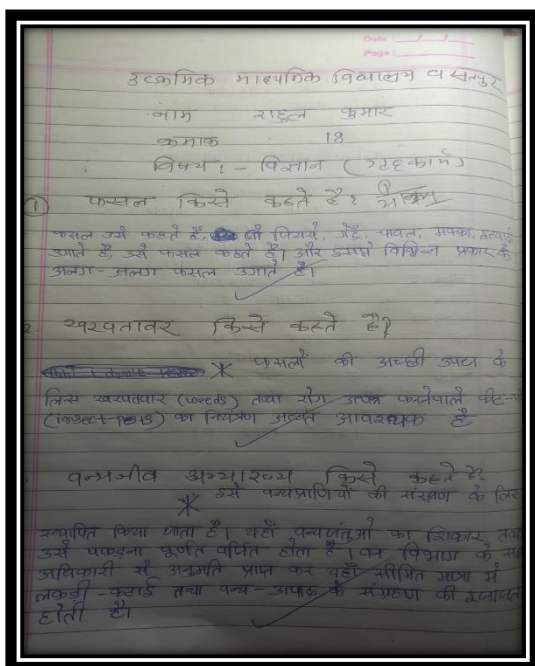 Date : / /
Page :
उत्क्रमिक माध्यमिक विद्यालय वसंतपुर
नाम राहुल कुमार
क्रमांक 18
विषय :- विज्ञान (गृहकार्य)
① फसल किसे कहते है?
फसल उसे कहते है, जिसमें, गेहूँ, चावल, मक्का, इत्यादि
उगाते है, उसे फसल कहते है। और इसमें विभिन्न प्रकार के
अलग-अलग फसल उगाते है।
2. खरपतावर किसे कहते है?
* फसलों की अच्छी उपज के
लिए खरपतवार (weeds) तथा रोग उत्पन्न करनेवाले कीट-
(insect-pests) का नियंत्रण अत्यंत आवश्यक है
वन्यजीव अभ्यारण्य किसे कहते है?
* इसे वन्यप्राणियों की संरक्षण के लिए
स्थापित किया जाता है। यहाँ वन्यजंतुओं का शिकार तथा
उसे पकड़ना पूर्णत वर्जित होता है। वन विभाग के
अधिकारी से अनुमति प्राप्त कर यहाँ सीमित मात्रा में
लकड़ी-कटाई तथा वन्य-उत्पाद के संग्रहण की इजाजत
होती है।